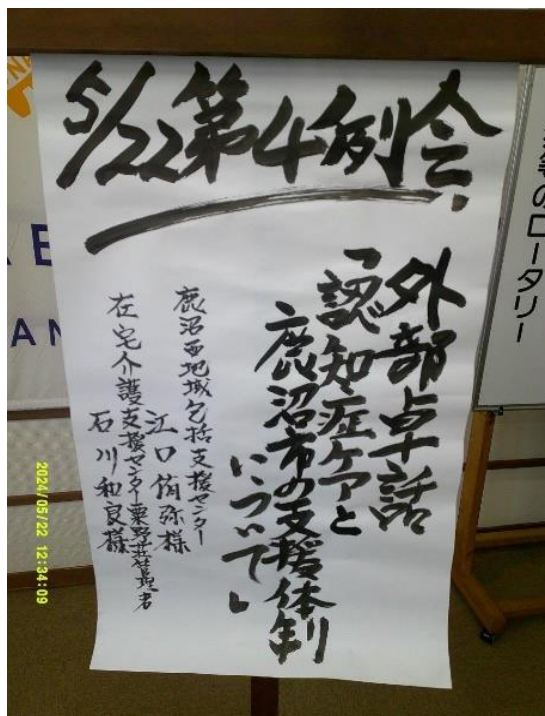 5/22第4例会
外部卓話
「認知症ケアと
鹿沼市の支援体制
について」
鹿沼西地域包括支援センター
江口侑弥様
在宅介護支援センター粟野荘管理者
石川和良様
等のロータリー
2024/05/22 12:34:09